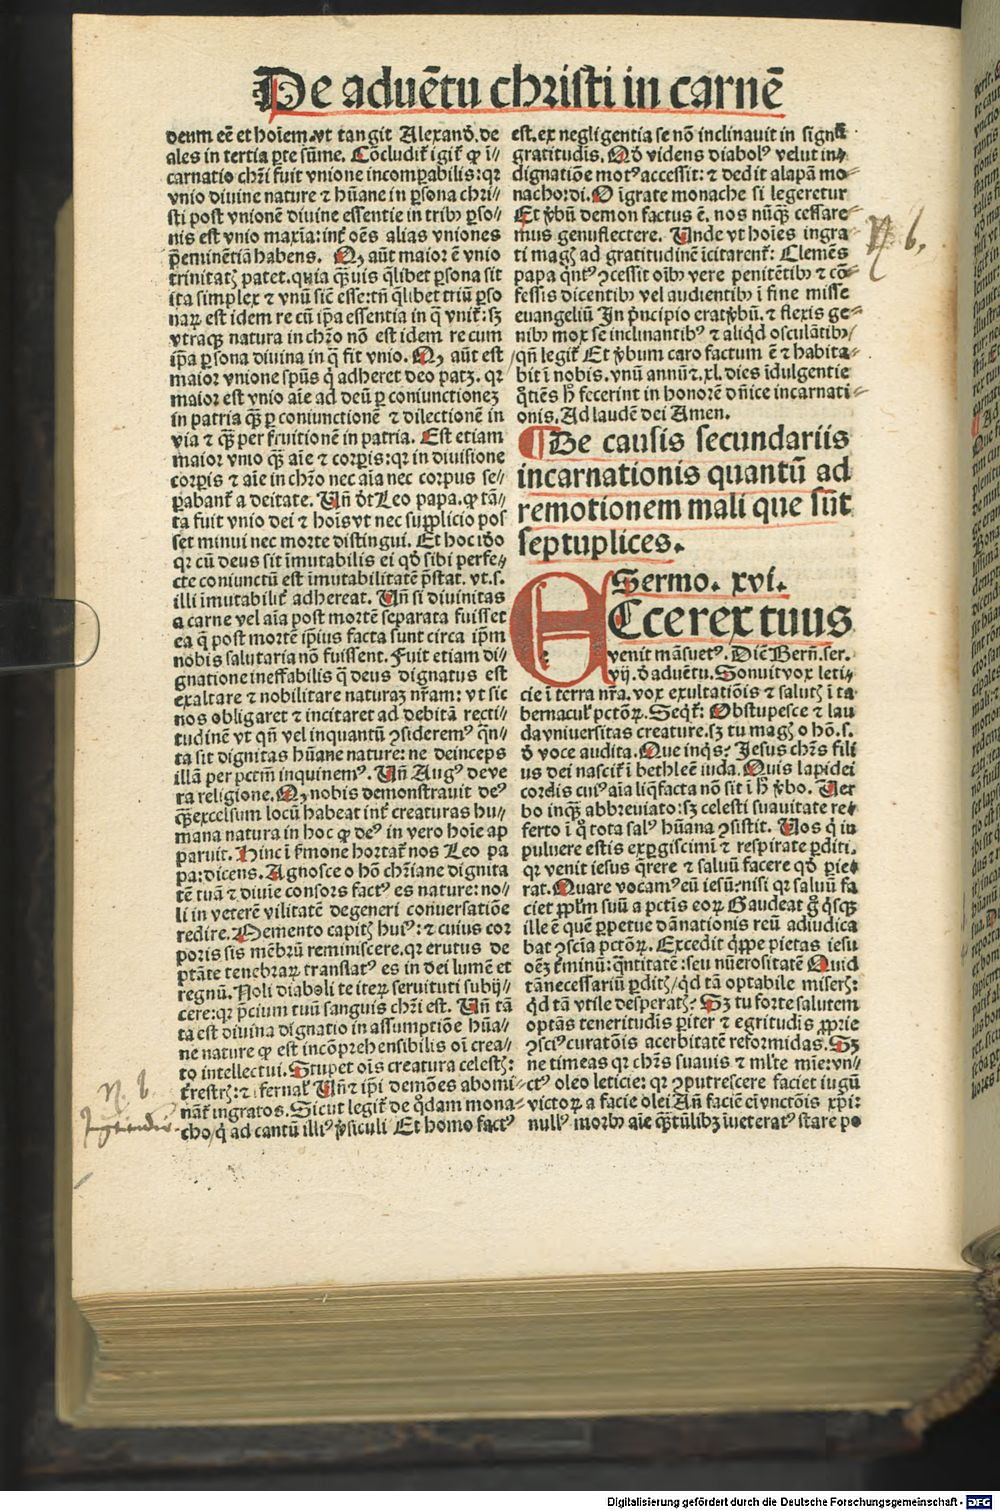 De aduētu christi in carnē
deum eē et hoīem. vt tangit Alexand. de
ales in tertia pte sūme. Cōcludit igit ꝙ ī⸗
carnatio chri fuit vnione incomparabilis: qr
vnio diuine nature et hūane in psona chri⸗
sti post vnionē diuine essentie in trib pso⸗
nis est vnio maxīa: int oēs alias vniones
peminētiā habens. Ꙙ aūt maior ē vnio
trinitatꝫ patet. quia quis qlibet psona sit
ita simplex et vnū sic esse: tn qlibet triū pso
narꝝ est idem re cū ipa essentia in q vnit: sꝫ
vtraqꝫ natura in chro nō est idem re cum
ipa psona diuina in q fit vnio. Ꙙ aūt est
maior vnione spūs q adheret deo patꝫ. qr
maior est vnio aīe ad deū p coniunctionez
in patria qꝫ p coniunctionē et dilectionē in
via et qꝫ per fruitionē in patria. Est etiam
maior vnio qꝫ aīe et corpis: qr in diuisione
corpis et aīe in chro nec aīa nec corpus se⸗
pabant a deitate. Vn dt Leo papa. ꝙ tā⸗
ta fuit vnio dei et hoīs vt nec supplicio pos
set minui nec morte distingui. Et hoc ido
qr cū deus sit īmutabilis ei qd sibi perfe⸗
cte coniunctū est īmutabilitatē pstat. vt. s.
illi īmutabilit adhereat. Vn si diuinitas
a carne vel aīa post mortē separata fuisset
ea q post mortē ipius facta sunt circa ipm
nobis salutaria nō fuissent. Fuit etiam di⸗
gnatione ineffabilis q deus dignatus est
exaltare et nobilitare naturaꝫ nram: vt sic
nos obligaret et incitaret ad debitā recti⸗
tudinē vt qn vel inquantū ꝯsideremꝰ qn⸗
ta sit dignitas hūane nature: ne deinceps
illā per pctm inquinemꝰ. Vn Augꝰ de ve
ra religione. Ꙙ nobis demonstrauit deꝰ
qꝫ excelsum locū habeat int creaturas hu⸗
mana natura in hoc ꝙ deꝰ in vero hoīe ap
paruit. Hinc ī smone hortat nos Leo pa
pa: dicens. Agnosce o hō chrīane dignita
tē tuā et diuīe consors factꝰ es nature: no⸗
li in veterē vilitatē degeneri conuersatiōe
redire. Memento capitꝫ huiꝰ: et cuius cor
poris sis mēbrū reminiscere. qr erutus de
ptāte tenebrarꝝ translatꝰ es in dei lumē et
regnū. Noli diaboli te iterꝝ seruituti subij⸗
cere: qr pcium tuū sanguis chri est. Vn tā
ta est diuina dignatio in assumptiōe hūa⸗
ne nature ꝙ est incōprehensibilis oī crea⸗
to intellectui. Stupet oīs creatura celestꝫ:
trestrꝫ: et īfernal Vn et ipi demōes abomi⸗
nāt ingratos. Sicut legit de qdam mona⸗
cho/ q ad cantū illiꝰ vsiculi Et homo factꝰ
est. ex negligentia se nō inclinauit in signū
gratitudis. Qd videns diabolꝰ velut in⸗
dignatiōe motꝰ accessit: et dedit alapā mo⸗
nacho: di. O īgrate monache si legeretur
Et vbū demon factus ē. nos nūqꝫ cessare⸗
mus genuflectere. Unde vt hoīes ingra
ti magꝫ ad gratitudinē īcitarent: Clemēs
papa qntꝰ ꝯcessit oīb vere penitētib et cō⸗
fessis dicentib vel audientib ī fine misse
euangeliū In pncipio erat vbū. et flexis ge⸗
nib mox se inclinantib et aliqd osculātib/
qn legit Et vbum caro factum ē et habita⸗
bit ī nobis. vnū annū et. xl. dies īdulgentie
qtiēs h fecerint in honorē dnīce incarnati⸗
onis. Ad laudē dei Amen.
¶ De causis secundariis
incarnationis quantū ad
remotionem mali que sūt
septuplices.
Sermo. xvi.
ECce rex tuus
venit māsuetꝰ. Dic Bern. ser.
vij. d aduētu. Sonuit vox leti⸗
cie ī terra nra. vox exultatiōis et salutꝫ ī ta
bernacul pctoꝝ. Seqt: Obstupesce et lau
da vniuersitas creature. sꝫ tu magꝫ o hō. s.
d voce audita. Que inqs: Jesus chrs fili
us dei nascit ī bethleē iuda. Quis lapidei
cordis cuiꝰ aīa liqfacta nō sit ī h vbo. Uer
bo inqꝫ abbreuiato: sꝫ celesti suauitate re⸗
ferto ī q tota salꝰ hūana ꝯsistit. Uos q in
puluere estis expgiscimi et respirate pditi.
qr venit iesus qrere et saluū facere qd pie⸗
rat. Quare vocamꝰ eū iesū: nisi qr saluū fa
ciet pplm suū a pctis eoꝝ Gaudeat g qsqꝫ
ille ē quē ppetue dānationis reū adiudica
bat ꝯscīa pctoꝝ. Excedit qppe pietas iesu
oēꝫ tminū: qntitatē: seu nūerositatē Quid
tā necessariū pditꝫ/ qd tā optabile miserꝫ:
qd tā vtile desperatꝫ: Sꝫ tu forte salutem
optās teneritudis piter et egritudis pprie
ꝯsciꝰ curatōis acerbitatē reformidas. Sꝫ
ne timeas qr chrs suauis et mlte mīe: vn⸗
ctꝰ oleo leticie: qr ꝯputrescere faciet iugū
victoꝝ a facie olei An faciē ei vnctōis xpi:
nullꝰ morb aīe qꝫtūlibꝫ īueteratꝰ stare po
N b.
N. b.
Digitalisierung gefördert durch die Deutsche Forschungsgemeinschaft - DFG